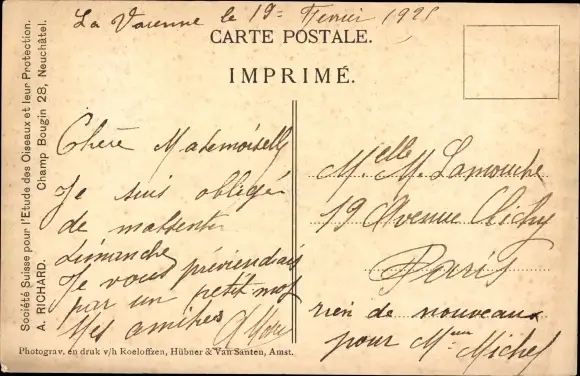 La Varenne le 19= Fevrier 1925
CARTE POSTALE.
IMPRIMÉ.
Société Suisse pour l'Etude des Oiseaux et leur Protection.
A. RICHARD. Champ Bougin 28, Neuchâtel.
Chère Mademoiselle
Je suis obligée
de m'absenter
dimanche
Je vous préviendrais
par un petit mot
Mes amitiés
Melle M. Lamouche
19 Avenue Clichy
Paris
rien de nouveau
pour Mme Michel
Photograv. en druk v/h Roeloffzen, Hübner & Van Santen, Amst.